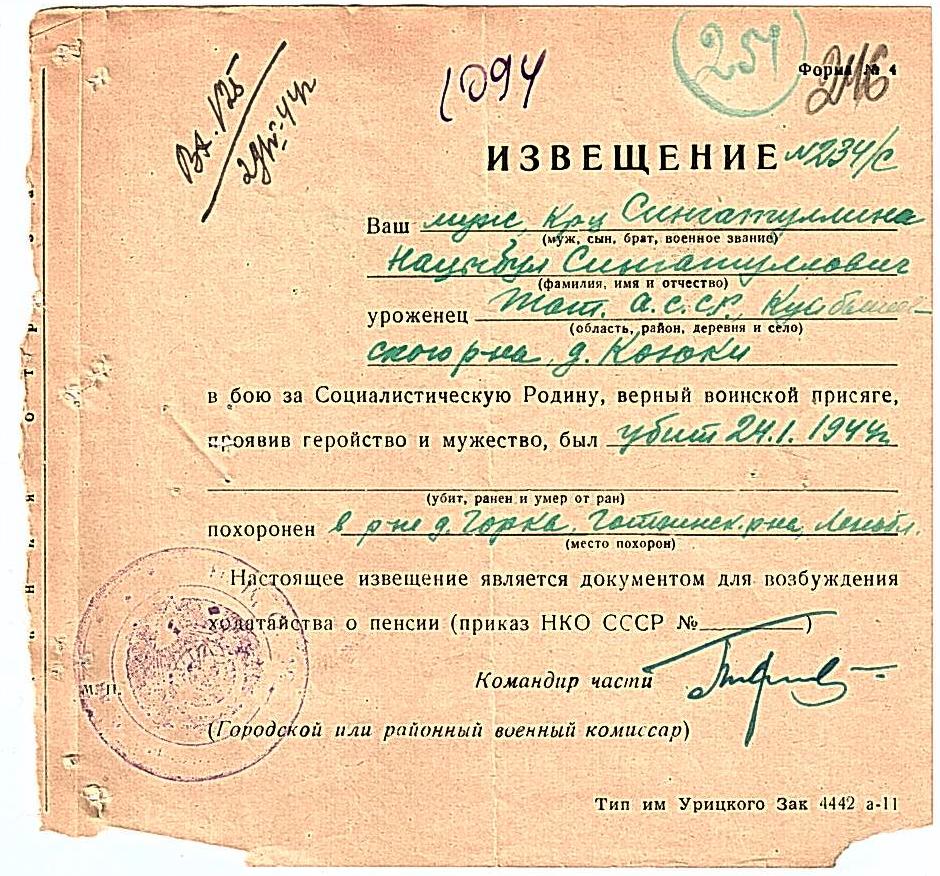 Вх. 125
1094
251
Форма № 4
246
ИЗВЕЩЕНИЕ №234/с
Ваш муж, Крц Сингатуллина
(муж, сын, брат, военное звание)
Сингатуллович
(фамилия, имя и отчество)
уроженец Тат. а.с.с.р.,
(область, район, деревня и село)
ского р-на, д. Коюки
в бою за Социалистическую Родину, верный воинской присяге,
проявив геройство и мужество, был убит 24.1.1944г
(убит, ранен и умер от ран)
похоронен в р-не д. Горка, р-на, Лен.обл.
(место похорон)
Настоящее извещение является документом для возбуждения
ходатайства о пенсии (приказ НКО СССР №        )
Командир части
М. П.
(Городской или районный военный комиссар)
Тип им Урицкого Зак 4442 а-11